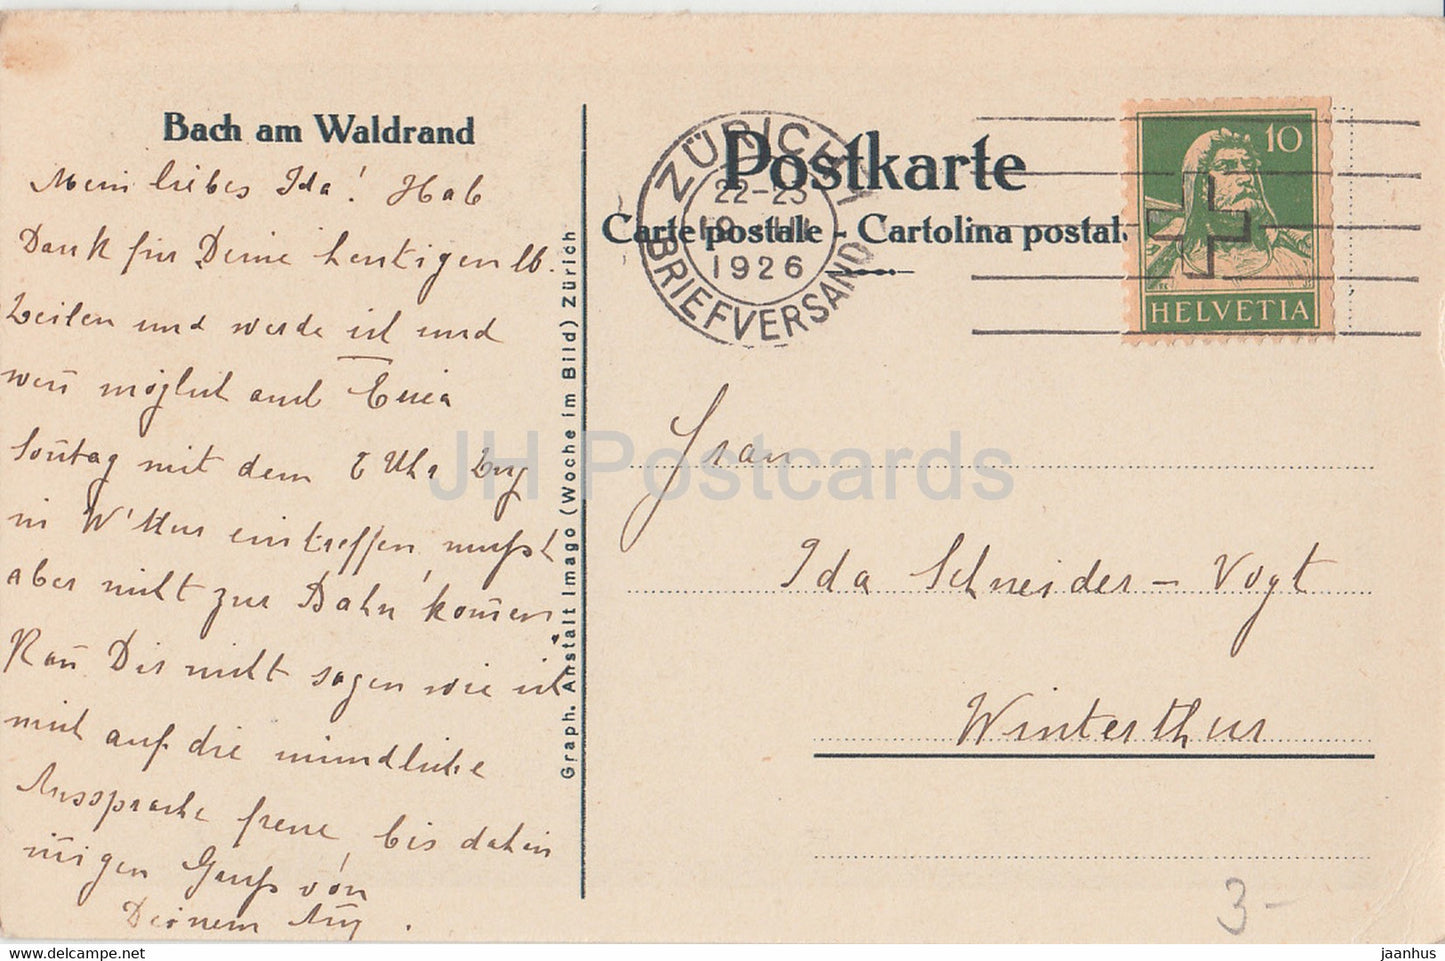 Bach am Waldrand
Mein liebes Ida! Hab
Dank für Deine heutigen lb.
Zeilen und werde ich und
wen̄ möglich auch Erica
Son̄tag mit dem Uhr Zug
in W'thur eintreffen, mußt
aber nicht zur Bahn kom̄en
Kan̄ Dir nicht sagen wie ich
mich auf die mündliche
Aussprache freue, bis dahin
in̄igen Gruß von
Deinem
Graph. Anstalt Imago (Woche im Bild) Zürich
Postkarte
Carte postale - Cartolina postale
ZÜRICH 1
22-23
1926
BRIEFVERSAND
10
HELVETIA
Frau
Ida Schneider - Vogt
Winterthur
3-
JH Postcards
jaanhus